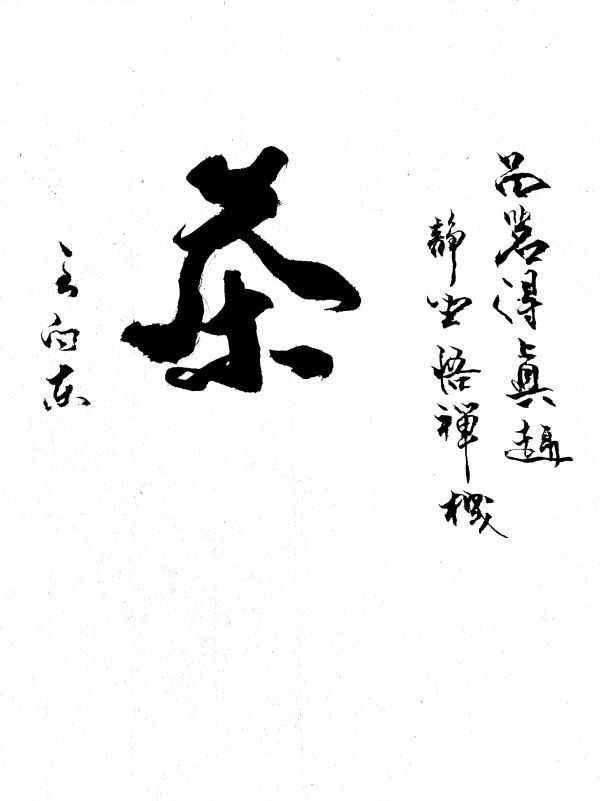 品茗得真趣
静坐悟禅機
茶
王向东